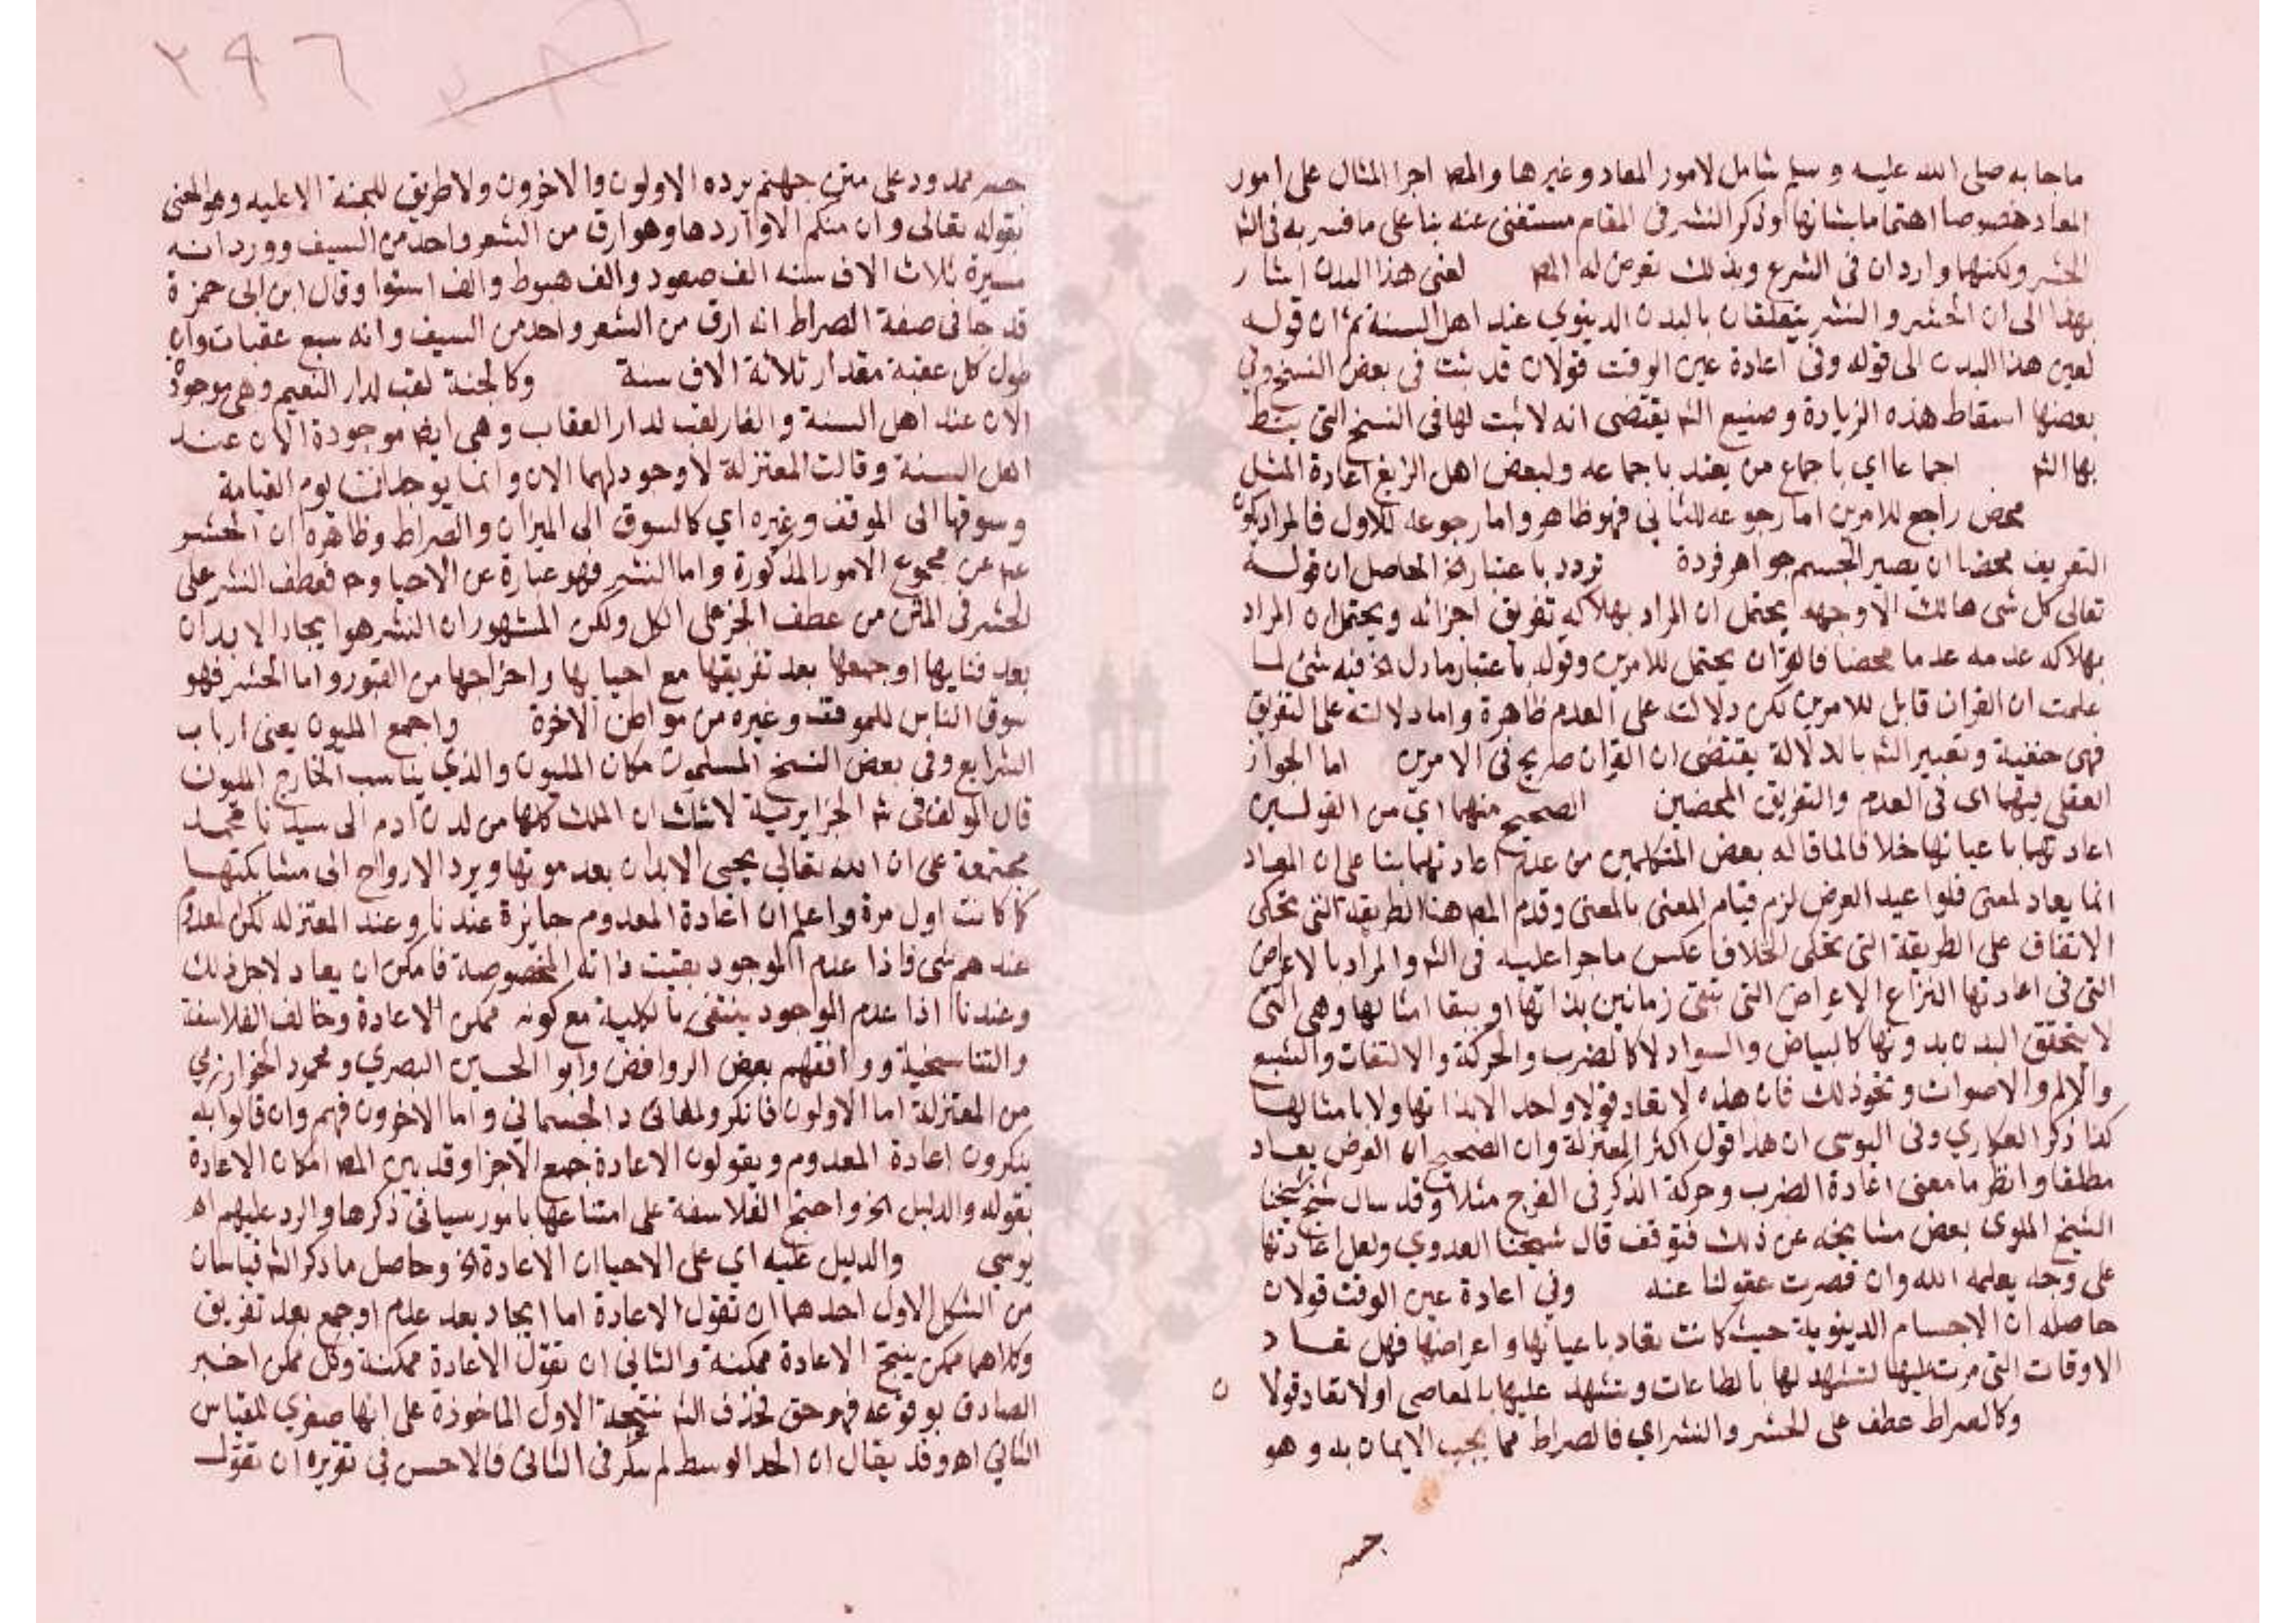 ماجا به صلى الله عليه وسلم شامل لامور المعاد وغيرها والمص اجرا المثال على امور
المعاد خصوصا اهتماما بشانها وذكر النشر فى المقام مستغنى عنه بنا على ما فسر به فى الش
الحشر ولكنهما واردان فى الشرع وبذلك تعرض له المص لعين هذا البدن اشار
بهذا الى ان الحشر والنشر يتعلقان بالبدن الدنيوي عند اهل السنة ثم ان قوله
لعين هذا البدن الى قوله وفى اعادة عين الوقت قولان قد ثبت فى بعض النسخ وفي
بعضها اسقاط هذه الزيادة وصنيع الش يقتضى انه لا ثبت لها فى النسخ التى
بها الش اجماعا اي باجماع من يعتد باجماعه ولبعض اهل الزايغ اعادة المثل
محض راجع للامرين اما رجوعه للثانى فهو ظاهر واما رجوعه للاول فالمراد بكون
التفريق محضا ان يصير الجسم جواهر فردة تردد باعتبار الخ الحاصل ان قوله
تعالى كل شى هالك الا وجهه يحتمل ان المراد بهلاكه تفريق اجزائه ويحتمل ان المراد
بهلاكه عدمه عدما محضا فالقران يحتمل للامرين وقوله باعتبار ما دل الخ فيه شئ لما
علمت ان القران قابل للامرين لكن دلالته على العدم ظاهرة واما دلالته على التفريق
فهى خفية وتعبير الش بالدلالة يقتضى ان القران صريح فى الامرين اما الجواز
العقلى فيهما اى فى العدم والتفريق المحضين الصحيح منهما اي من القولين
اعادتهما باعيانها خلافا لما قاله بعض المتكلمين من عدم اعادتهما بنا على ان المعاد
انما يعاد لمعنى فلو اعيد العرض لزم قيام المعنى بالمعنى وقدم المص هنا الطريقة التى تحكى
الاتفاق على الطريقة التى تحكى الخلاف عكس ما جرا عليه فى الش والمراد بالاعراض
التى فى اعادتها النزاع الاعراض التى تبقى زمانين بذاتها او ببقا امثالها وهى التى
لا يتحقق البدن بدونها كالبياض والسواد لا كالضرب والحركة والالتفات والشبع
والالم والاصوات ونحو ذلك فان هذه لا تعاد قولا واحدا لا بذاتها ولا بامثالها
كذا ذكر العكاري وفى اليوسى ان هذا قول اكثر المعتزلة وان الصحيح ان العرض يعاد
مطلقا وانظر ما معنى اعادة الضرب وحركة الذكر فى الفرج مثلا وقد سال شيخ شيخنا
الشيخ الملوى بعض مشايخه عن ذلك فتوقف قال شيخنا العدوي ولعل اعادتها
على وجه يعلمه الله وان قصرت عقولنا عنه وفي اعادة عين الوقت قولان
حاصله ان الاجسام الدنيوية حيث كانت تعاد باعيانها واعراضها فهل تعاد
الاوقات التى مرت عليها لتشهد لها بالطاعات وتشهد عليها بالمعاصى اولا تعاد قولان
وكالصراط عطف على الحشر والنشر اي فالصراط مما يجب الايمان به وهو
جسر
٢٩٦
جسر ممدود على متن جهنم يرده الاولون والاخرون ولا طريق للجنة الا عليه وهو المعنى
بقوله تعالى وان منكم الا واردها وهو ارق من الشعر واحد من السيف وورد انه
مسيرة ثلاث الاف سنه الف صعود والف هبوط والف استوا وقال ابن ابى جمرة
قد جا فى صفة الصراط انه ارق من الشعر واحد من السيف وانه سبع عقبات وان
طول كل عقبة مقدار ثلاثة الاف سنة وكالجنة لقب لدار النعيم وهى موجودة
الان عند اهل السنة والنار لقب لدار العقاب وهى ايض موجودة الان عند
اهل السنة وقالت المعتزلة لا وجود لهما الان وانما يوجدان يوم القيامة
وسوقها الى الموقف وغيره اي كالسوق الى الميزان والصراط وظاهره ان الحشر
عبر عن مجموع الامور المذكورة واما النشر فهو عبارة عن الاحيا وح فعطف النشر على
الحشر فى المتن من عطف الجز على الكل ولكن المشهور ان النشر هو ايجاد الابدان
بعد فنايها او جمعها بعد تفريقها مع احيايها واخراجها من القبور واما الحشر فهو
سوق الناس للموقف وغيره من مواطن الاخرة واجمع المليون يعنى ارباب
الشرايع وفى بعض النسخ المسلمون مكان المليون والذي يناسب الخارج المليون
قال المولف فى ش الجزايرية لا شك ان الملل كلها من لدن ادم الى سيدنا محمد
مجتمعة على ان الله تعالى يحيى الابدان بعد موتها ويرد الارواح الى مشابكتها
كما كانت اول مرة واعلم ان اعادة المعدوم جايزة عندنا وعند المعتزله لكن المعدوم
عندهم شى فاذا عدم الموجود بقيت ذاته المخصوصة فامكن ان يعاد لاجل ذلك
وعندنا اذا عدم الموجود ينتفى بالكلية مع كونه ممكن الاعادة وخالف الفلاسفة
والتناسخية ووافقهم بعض الروافض وابو الحسين البصري ومحمود الخوارزمي
من المعتزلة اما الاولون فانكروا المعاد الجسمانى واما الاخرون فهم وان قالوا به
ينكرون اعادة المعدوم ويقولون الاعادة جمع الاجزا وقد بين المص امكان الاعادة
بقوله والدليل الخ واحتج الفلاسفة على امتناعها بامور سياتى ذكرها والرد عليهم اه
يوسي والدليل عليه اي على الاحيا ان الاعادة الخ وحاصل ما ذكر الش قياسان
من الشكل الاول احدهما ان تقول الاعادة اما ايجاد بعد عدم او جمع بعد تفريق
وكلاهما ممكن ينتج الاعادة ممكنة والثانى ان تقول الاعادة ممكنة وكل ممكن اخبر
الصادق بوقوعه فهو حق فحذف الش نتيجة الاول الماخوذة على انها صغري للقياس
الثاني اه وقد يقال ان الحد الوسط لم يتكرر فى الثانى فالاحسن في تقريره ان تقول